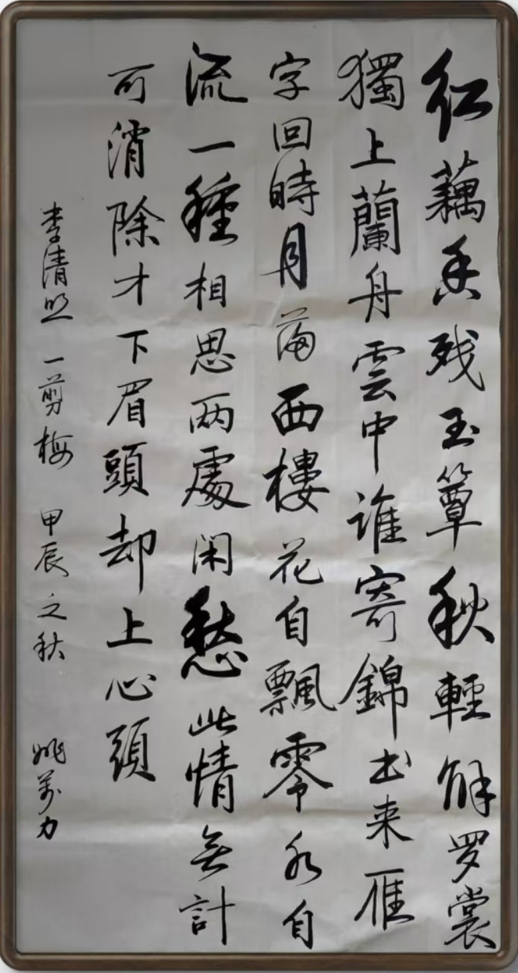 红藕香残玉簟秋輕解罗裳
獨上蘭舟雲中誰寄錦书来雁
字回時月满西樓花自飄零水自
流一種相思两處闲愁此情无計
可消除才下眉頭却上心頭
李清照一剪梅 甲辰之秋 姚万力